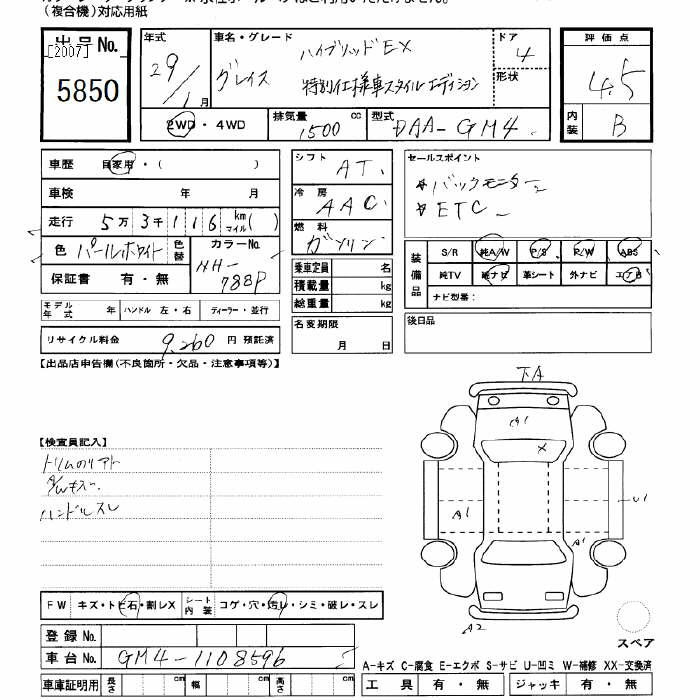 (複合機)対応用紙
出品No. [2007] 5850
年式 29/1月
車名・グレード ハイブリッドEX
グレイス 特別仕様車スタイルエディション
ドア 4
形状
2WD・4WD
排気量 1500 cc
型式 DAA-GM4
評価点 4.5
内装 B
車歴 自家用・( )
車検 年 月
走行 5万3千116 km マイル( )
色 パールホワイト 色替
カラーNo. NH-788P
保証書 有・無
モデル年式 年 ハンドル 左・右 ディーラー・並行
リサイクル料金 9,260 円 預託済
シフト AT
冷房 AAC
燃料 ガソリン
乗車定員 名
積載量 kg
総重量 kg
名変期限 月 日
セールスポイント
バックモニター
ETC
装備品 S/R 純A/W P/S P/W ABS
純TV 純ナビ 革シート 外ナビ エアB
ナビ型番:
後日品
【出品店申告欄(不良箇所・欠品・注意事項等)】
【検査員記入】
ハンドルスレ
下A
A1
X
A1
A1
U1
A2
スペア
FW キズ・トビ石・割レX シート内装 コゲ・穴・汚レ・シミ・破レ・スレ
登録No.
車台No. GM4-1108596
車庫証明用 長さ cm 幅 cm 高さ cm
A-キズ C-腐食 E-エクボ S-サビ U-凹ミ W-補修 XX-交換済
工具 有・無 ジャッキ 有・無